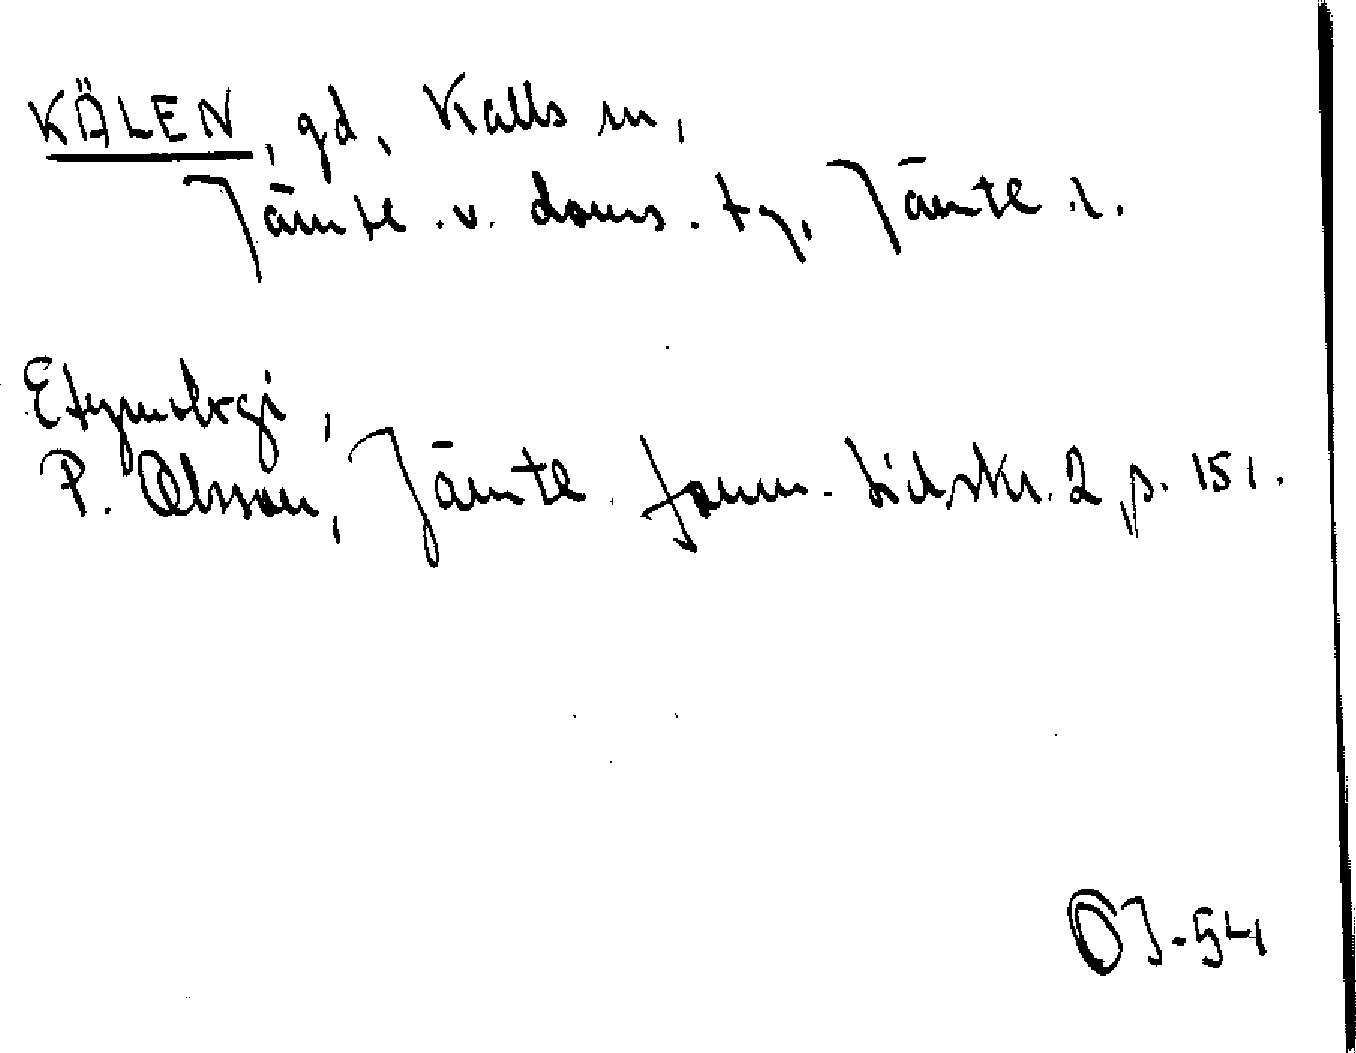 KÄLEN, gd, Kalls sn,
Jämtl. v. doms. tg, Jämtl. l.
Etymologi,
P. Olsson, Jämtl. fornm. tidskr. 2 p. 151.
OJ-54